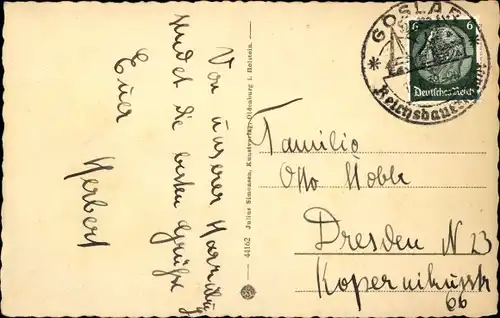 Von unserer Harzreise
sendet die besten Grüße
Euer
Herbert
44162 Julius Simonsen, Kunstverlag, Oldenburg i. Holstein.
GOSLAR
Reichsbauernstadt
6 6
Deutsches Reich
Familie
Otto Noble
Dresden N 23
Kopernikusstr
66